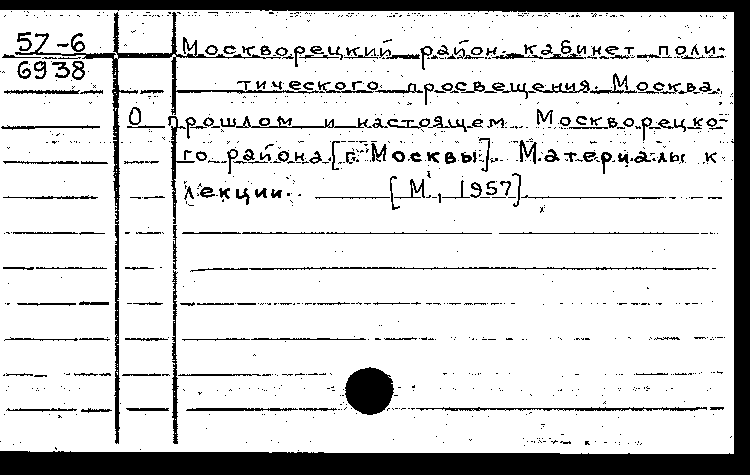 57-6 Москворецкий район. кабинет поли-
6938 тического просвещения. Москва.
О прошлом и настоящем Москворецко-
го района [г. Москвы]. Материалы к
лекции. [М., 1957].